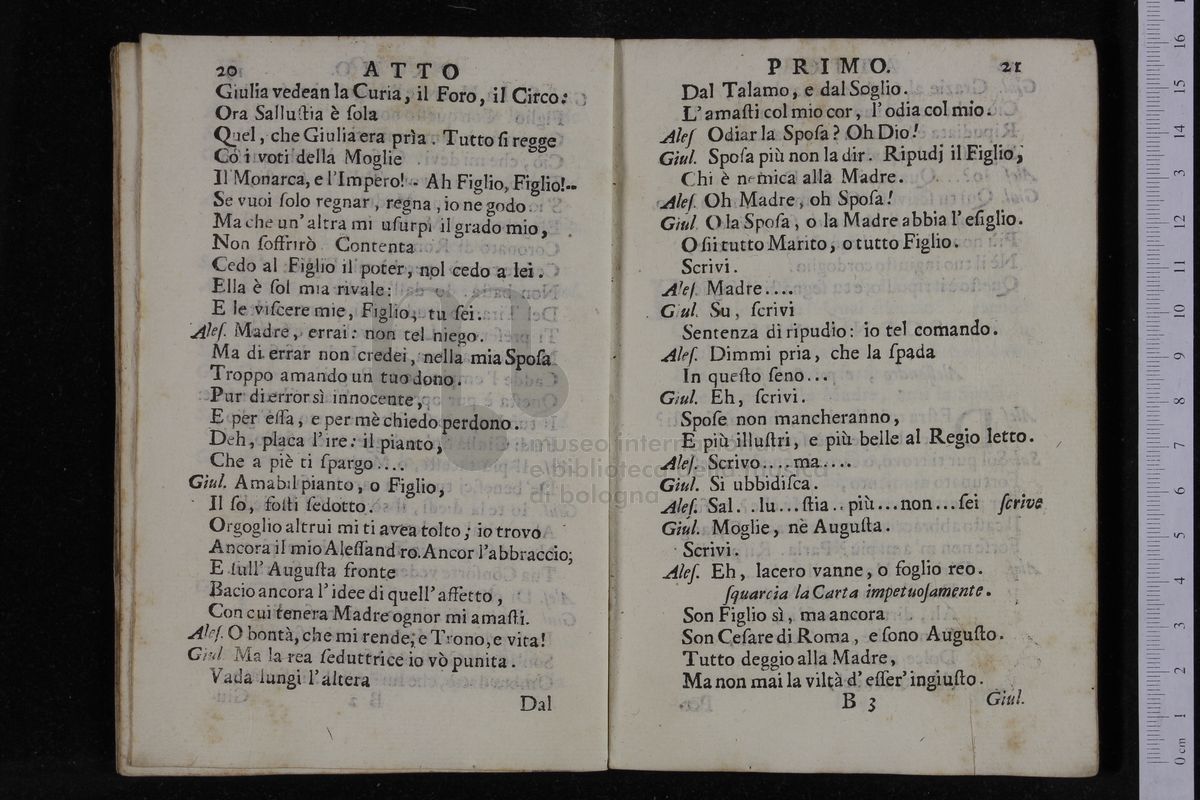 20 ATTO
Giulia vedean la Curia, il Foro, il Circo:
Ora Salluſtia è ſola
Quel, che Giulia era prìa. Tutto ſi regge
Có i voti della Moglie
Il Monarca, e l'Impero! - Ah Figlio, Figlio!--
Se vuoi ſolo regnar, regna, io ne godo.
Ma che un'altra mi uſurpi il grado mio,
Non ſoffrirò Contenta
Cedo al Figlio il poter, nol cedo a lei.
Ella è ſol mia rivale:
E le viſcere mie, Figlio, tu ſei.
Aleſ. Madre, errai: non tel niego.
Ma di errar non credei, nella mia Spoſa
Troppo amando un tuo dono.
Pur di error sì innocente,
E per eſſa, e per mè chiedo perdono.
Deh, placa l'ire: il pianto,
Che a piè ti ſpargo....
Giul. Amabil pianto, o Figlio,
Il ſo, foſti ſedotto.
Orgoglio altrui mi ti avea tolto; io trovo
Ancora il mio Aleſſandro. Ancor l'abbraccio;
E ſull' Auguſta fronte
Bacio ancora l'idee di quell'affetto,
Con cui tenera Madre ognor mi amaſti.
Aleſ. O bontà, che mi rende; e Trono, e vita!
Giul Ma la rea ſeduttrice io vò punita.
Vada lungi l'altera
Dal
PRIMO. 21
Dal Talamo, e dal Soglio.
L'amaſti col mio cor, l'odia col mio.
Aleſ Odiar la Spoſa? Oh Dio!
Giul. Spoſa più non la dir. Ripudj il Figlio,
Chi è nemica alla Madre.
Aleſ. Oh Madre, oh Spoſa!
Giul O la Spoſa, o la Madre abbia l'eſiglio.
O ſii tutto Marito, o tutto Figlio.
Scrivi.
Aleſ. Madre....
Giul. Su, ſcrivi
Sentenza di ripudio: io tel comando.
Aleſ. Dimmi pria, che la ſpada
In queſto ſeno...
Giul. Eh, ſcrivi.
Spoſe non mancheranno,
E più illuſtri, e più belle al Regio letto.
Aleſ. Scrivo....ma....
Giul. Si ubbidiſca.
Aleſ. Sal...lu...ſtia..più...non...ſei ſcrive
Giul. Moglie, nè Auguſta.
Scrivi.
Aleſ. Eh, lacero vanne, o foglio reo.
ſquarcia la Carta impetuoſamente.
Son Figlio sì, ma ancora
Son Ceſare di Roma, e ſono Auguſto.
Tutto deggio alla Madre,
Ma non mai la viltà d'eſſer'ingiuſto.
B 3 Giul.
museo internazionale
e biblioteca della musica
di bologna
0 cm 1 2 3 4 5 6 7 8 9 10 11 12 13 14 15 16